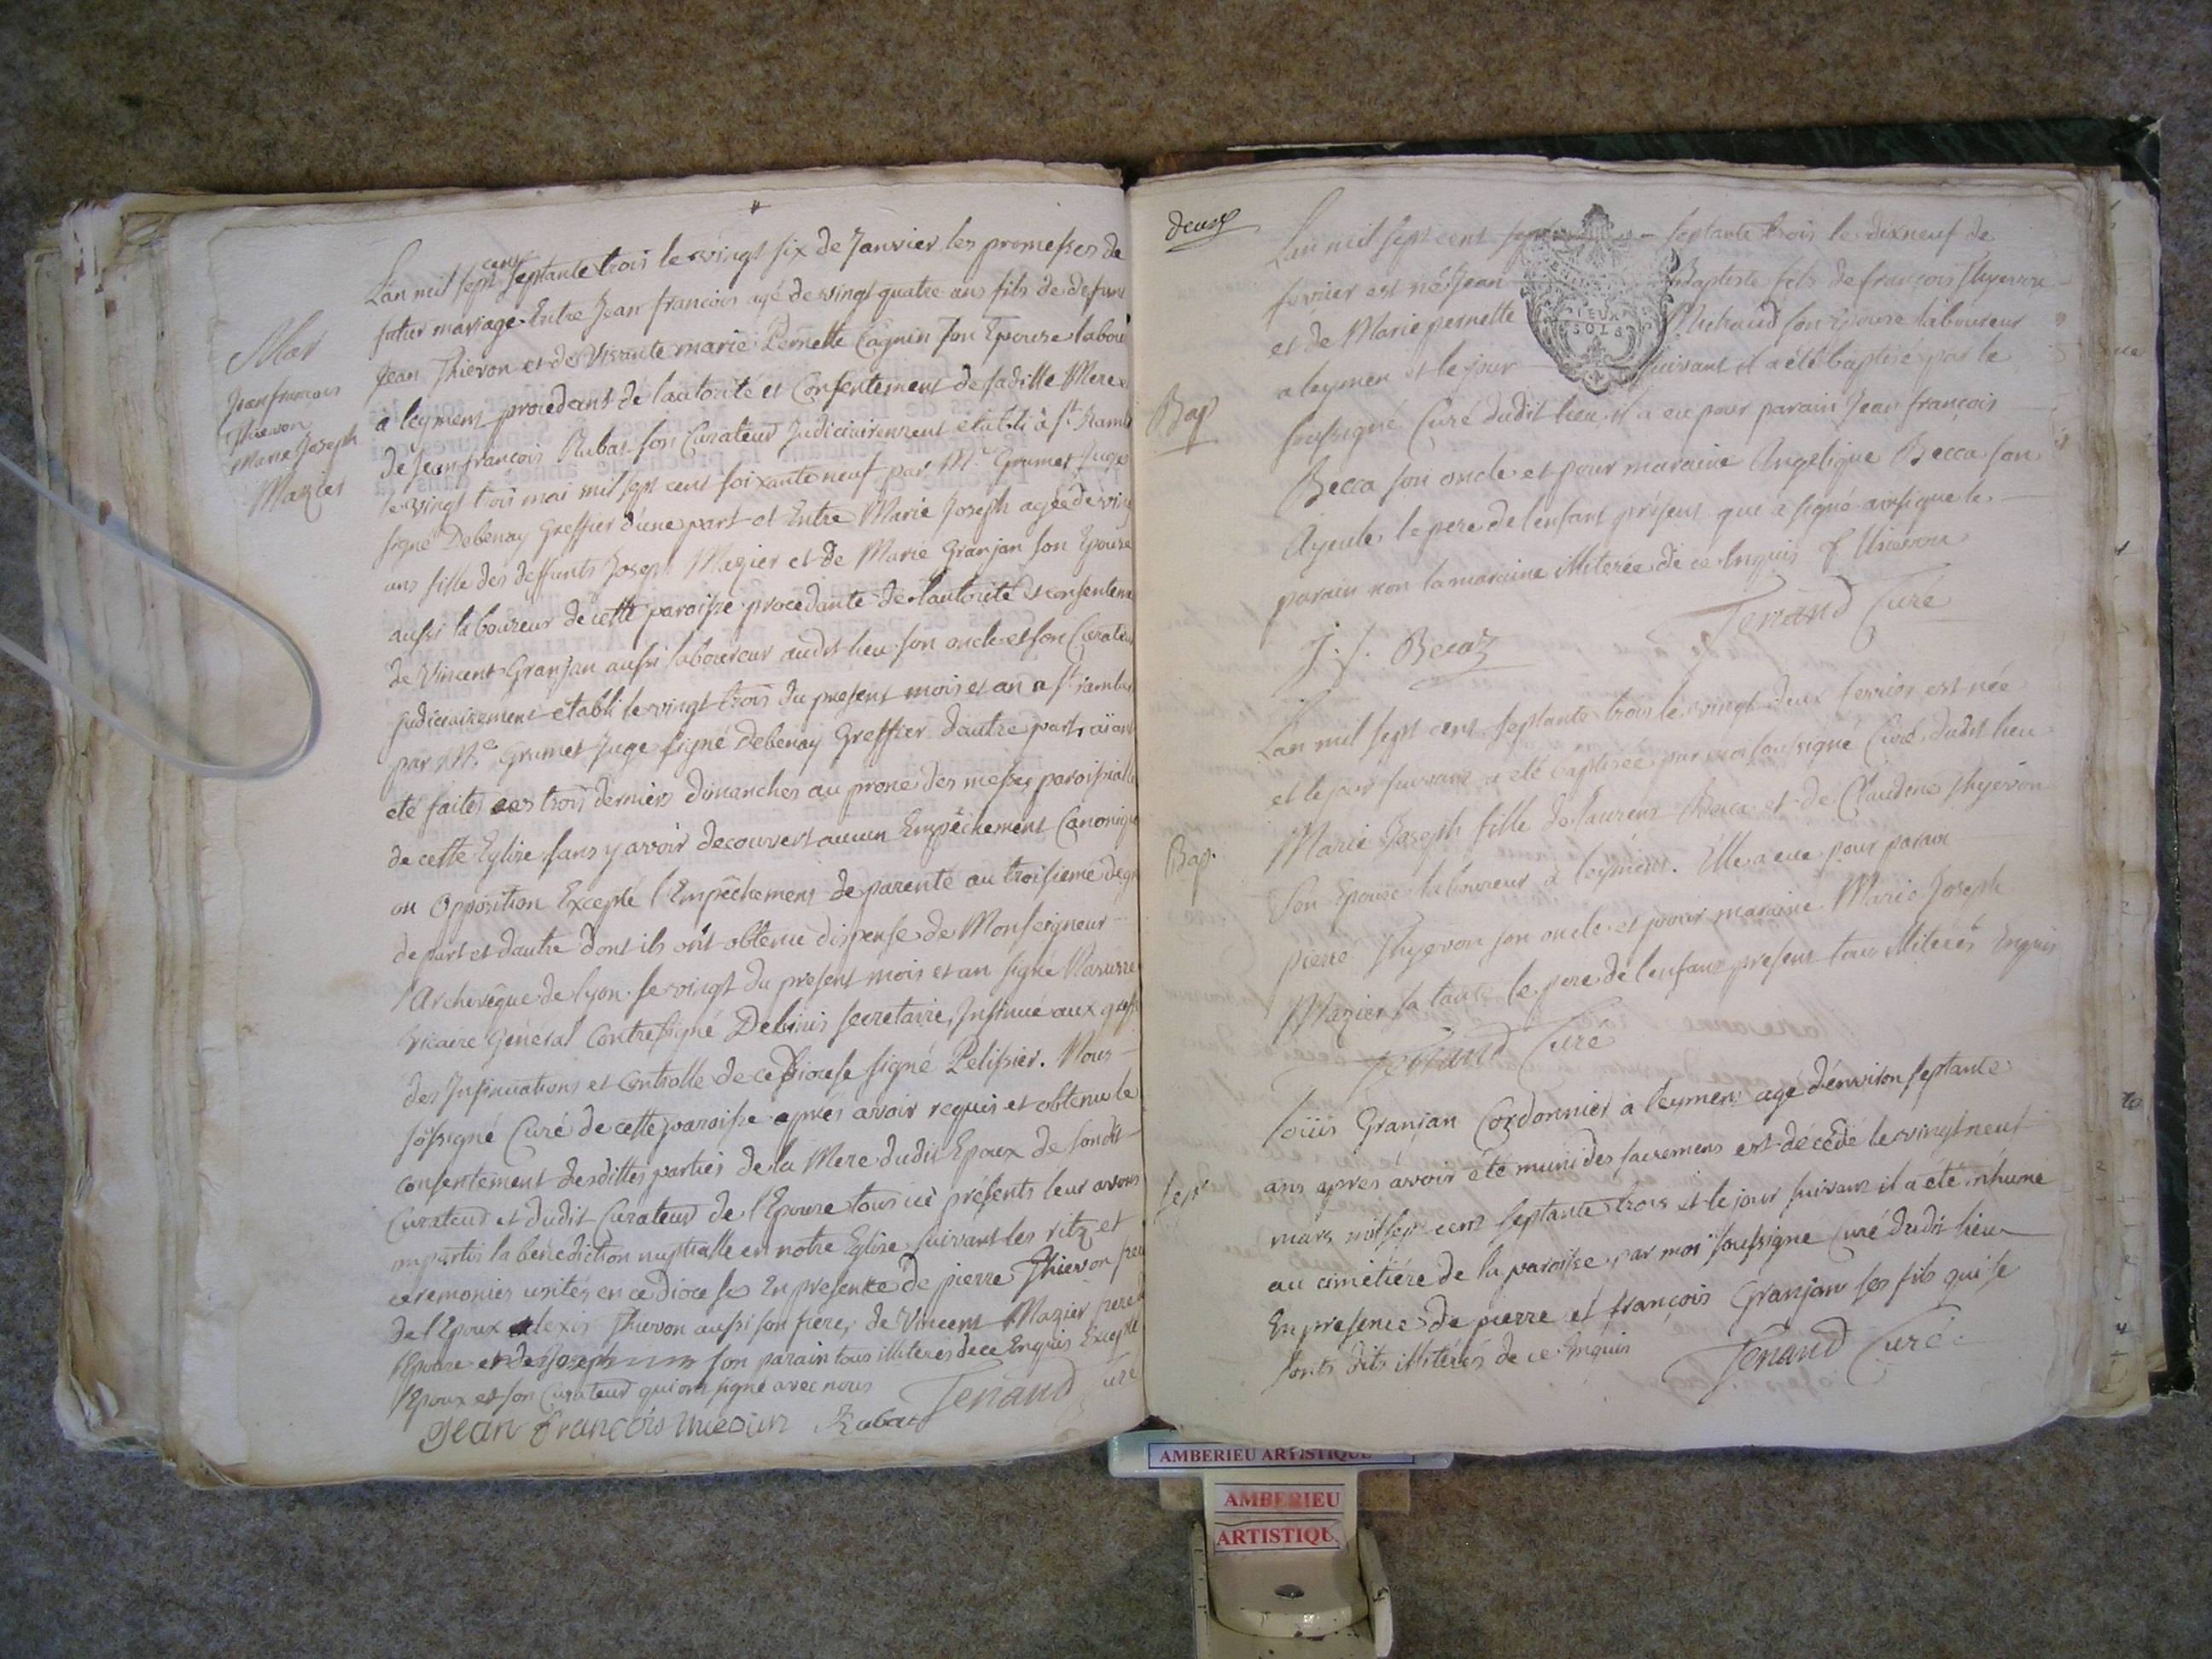 Mar
Jean francois
Thievon
Marie Joseph
Mazier
L'an mil sept cent septante trois le vingt six de Janvier les promesses de
futur mariage Entre Jean francois agé de vingt quatre ans fils de defunt
Jean Thievon et de Vivante marie Pernette Cagnin son Epouse labou
a leyment procedant de lautorité et Consentement de sadille Mere et
de Jean francois Rubat son Curateur Judiciairement etabli à St Ramb
le vingt trois mai mil sept cent soixante neuf par Me Grumet Juge
signé Debenay Greffier d'une part et Entre Marie Joseph agée de ving
ans fille des deffunts Joseph Mazier et de Marie Granjan son Epouse
aussi laboureur de cette paroisse procedante de lautorité et consenteme
de Vincent Granjan aussi laboureur audit lieu son oncle et son Curateur
Judiciairement etabli le vingt trois du present mois et an a St rambe
par Me Grumet Juge signé Debenay Greffier d'autre part, aiant
eté faites ces trois derniers dimanches au prone des messes paroissialle
de cette Eglise sans y avoir decouvert aucun Empêchement Canonique
ou Opposition Excepté l'Empêchement de parenté au troisieme degr
de part et dautre dont ils ont obtenu dispense de Monseigneur
l'Archevêque de lyon le vingt du present mois et an signé
Vicaire Général Contresigné secretaire, Insinué aux greff
des Insinuations et Controlle de ce Diocese signé Pelissier. Nous
sossigné Curé de cette paroisse aprés avoir requis et obtenu le
consentement desdittes parties de la Mere dudit Epoux de sondit
Curateur et dudit Curateur de l'Epouse tous ici présents leur avons
impartis la bénédiction nuptialle en notre Eglise suivant les ritz et
ceremonies usités en ce diocese En presence de pierre Thievon frere
de l'Epoux alexis Thievon aussi son frere, de Vincent Mazier frere d
l'Epouse et de Joseph son parain tous illiteres de ce Enquis Excepté
l'Epoux et son Curateur qui ont signé avec nous Tenand Curé
Jean François thievon Rubat
deux
L'an mil sept cent septante trois le dixneuf de
fevrier est né Jean Baptiste fils de françois thyevon
et de Marie pernette Michaud son Epouse laboureur
a leymen et le jour suivant il a été baptisé par le
Bap
soussigné Curé dudit lieu il a eu pour parain Jean françois
Becca son oncle et pour maraine Angelique Becca son
Ayeule, le pere de lenfant présent qui a signé ainsi que le
parain non la maraine illiterée de ce Enquis f. thievon
J. f. Becaz Tenand Curé
L'an mil sept cent septante trois le vingt deux fevrier est née
et le jour suivant a eté baptisée par moi soussigné Curé dudit lieu
Bap.
Marie Joseph fille de laurent Beca et de Claudine thyevon
son Epouse laboureur à leyment. Elle a eue pour parain
pierre Thyevon son oncle et pour maraine Marie Joseph
Mazier sa tante le pere de l'enfant présent tous illiterés Enquis
Tenand Curé
loüis Granjan Cordonnier à leyment agé d'environ septante
ans aprés avoir été muni des sacremens est décédé le vingt neuf
Sep
mars mil sept cent septante trois et le jour suivant il a eté inhumé
au cimetiére de la paroisse par moi soussigné Curé dudit lieu
En presence de pierre et françois Granjan ses fils qui se
sonts dits illitérés de ce Enquis Tenand Curé
DEUX
SOLS
AMBERIEU ARTISTIQUE
AMBERIEU
ARTISTIQU